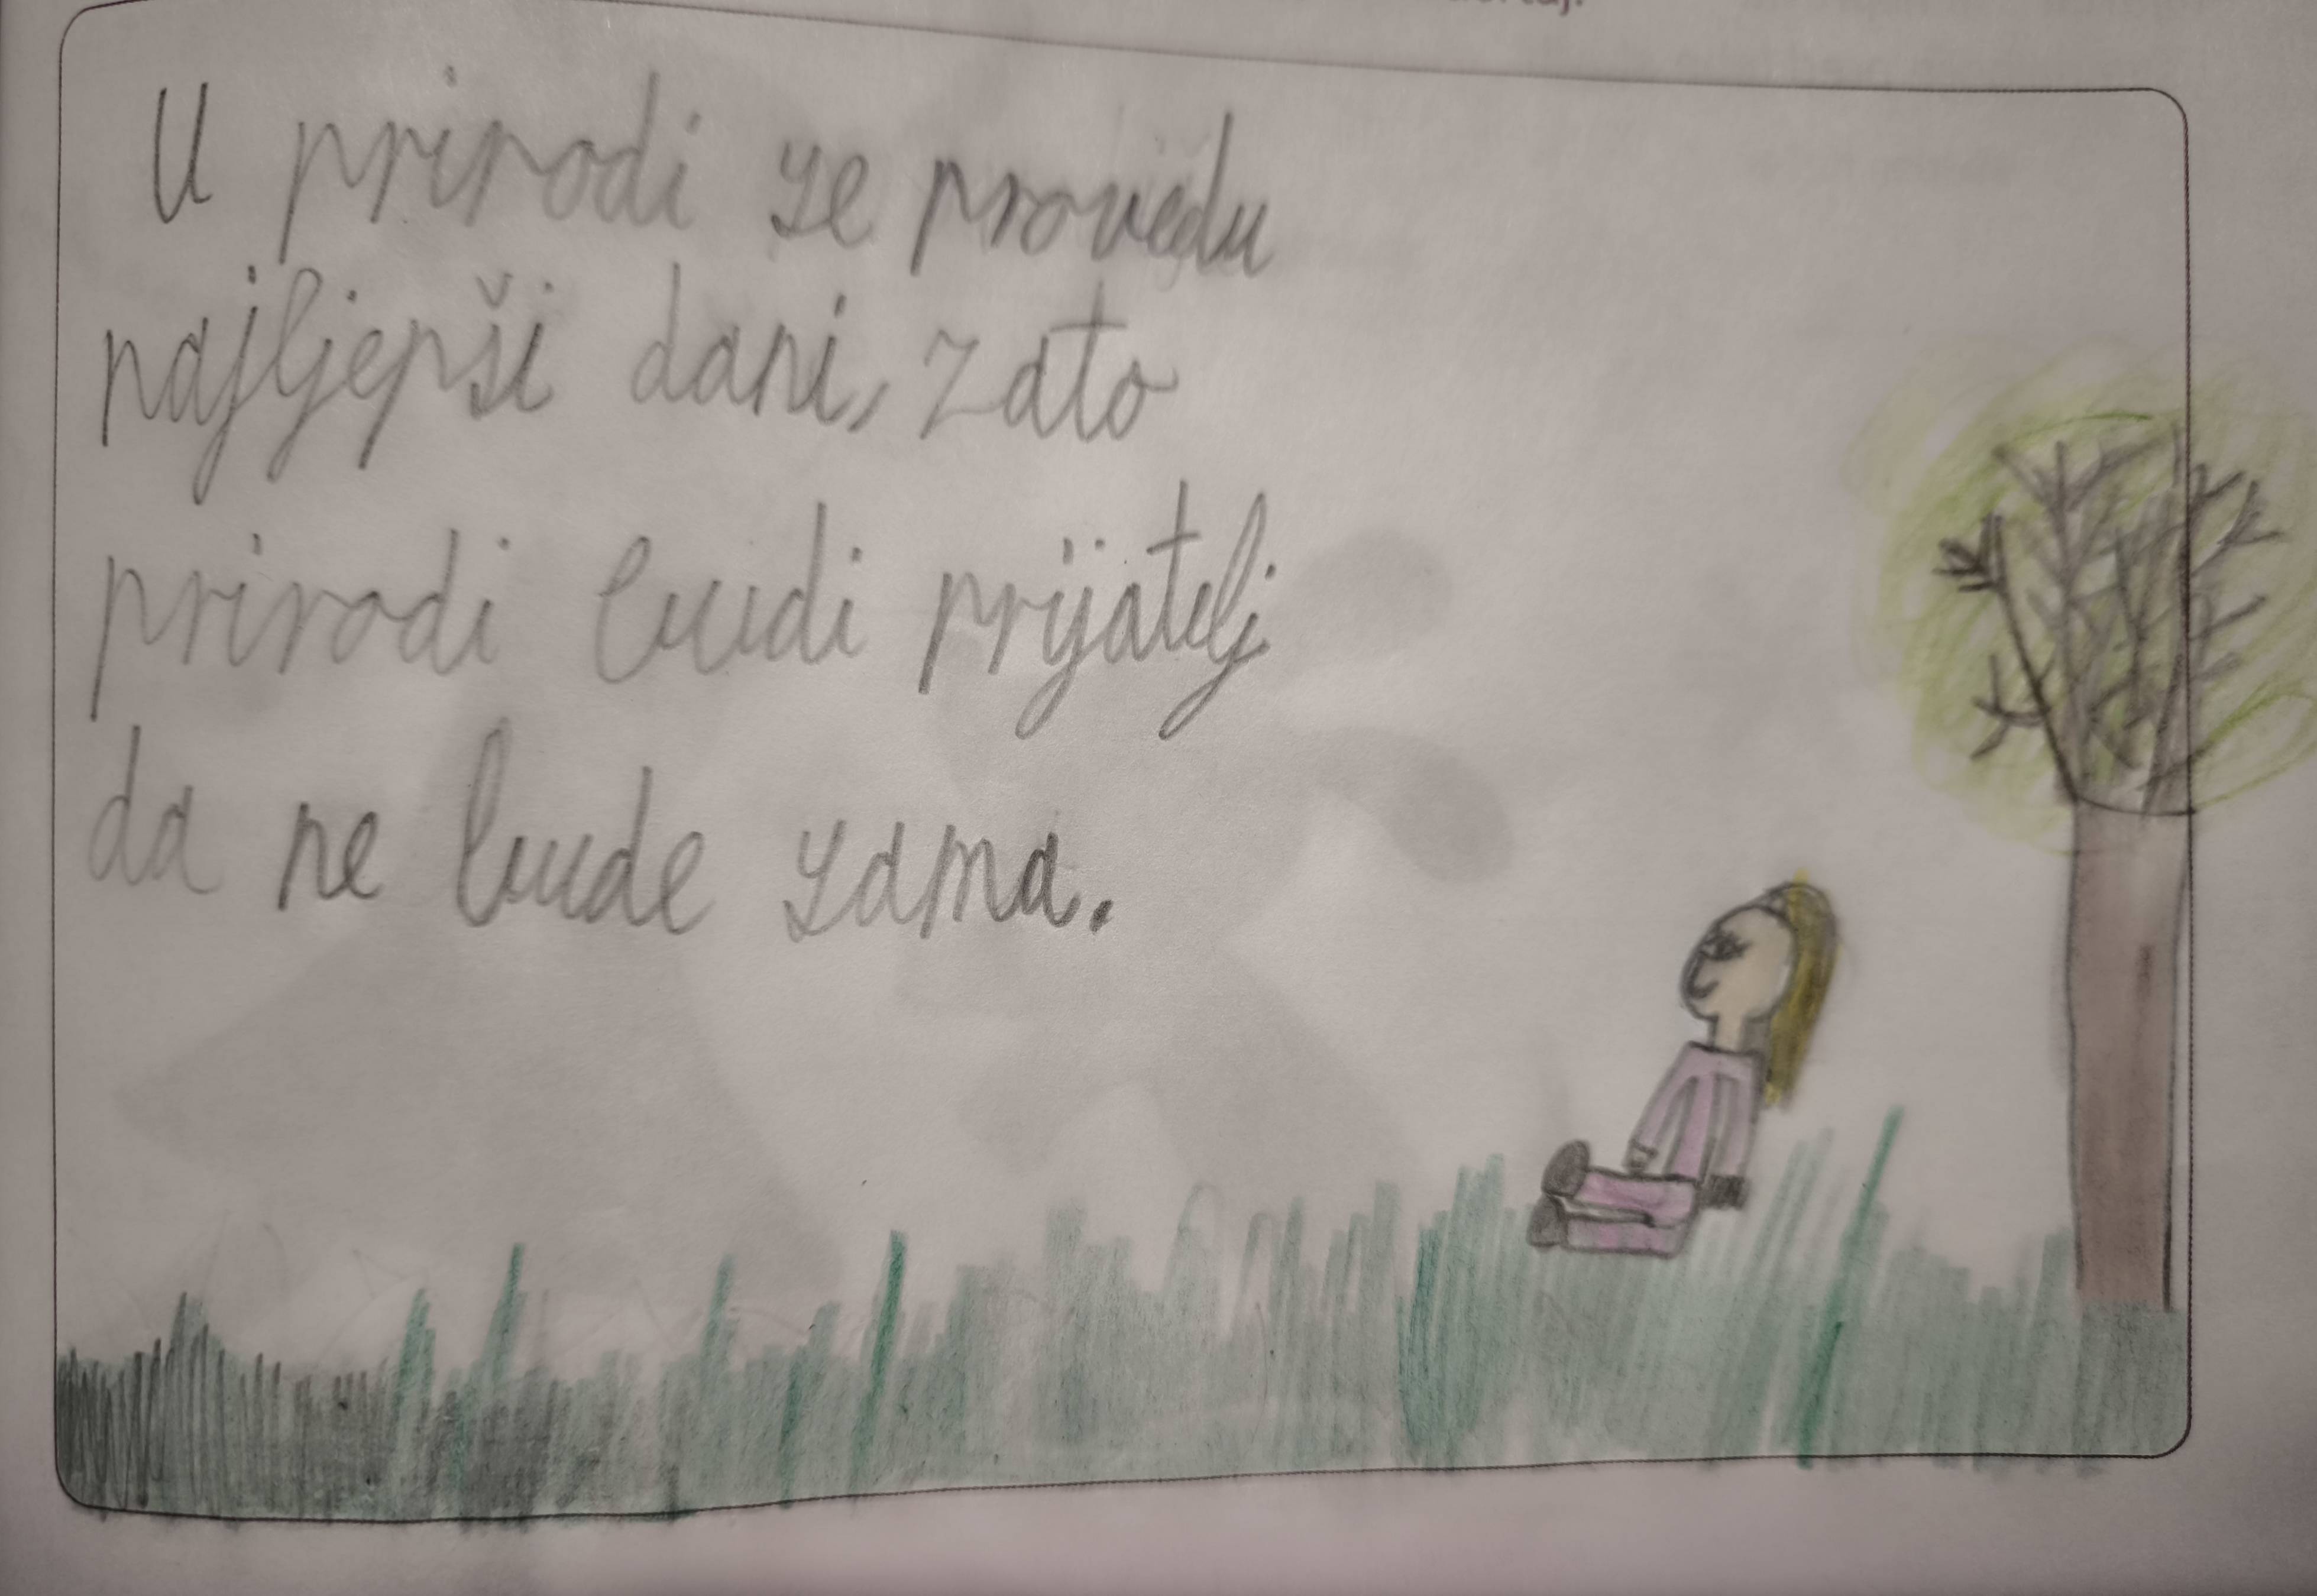 U prirodi se provedu
najljepši dani, zato
prirodi budi prijatelj
da ne bude sama.